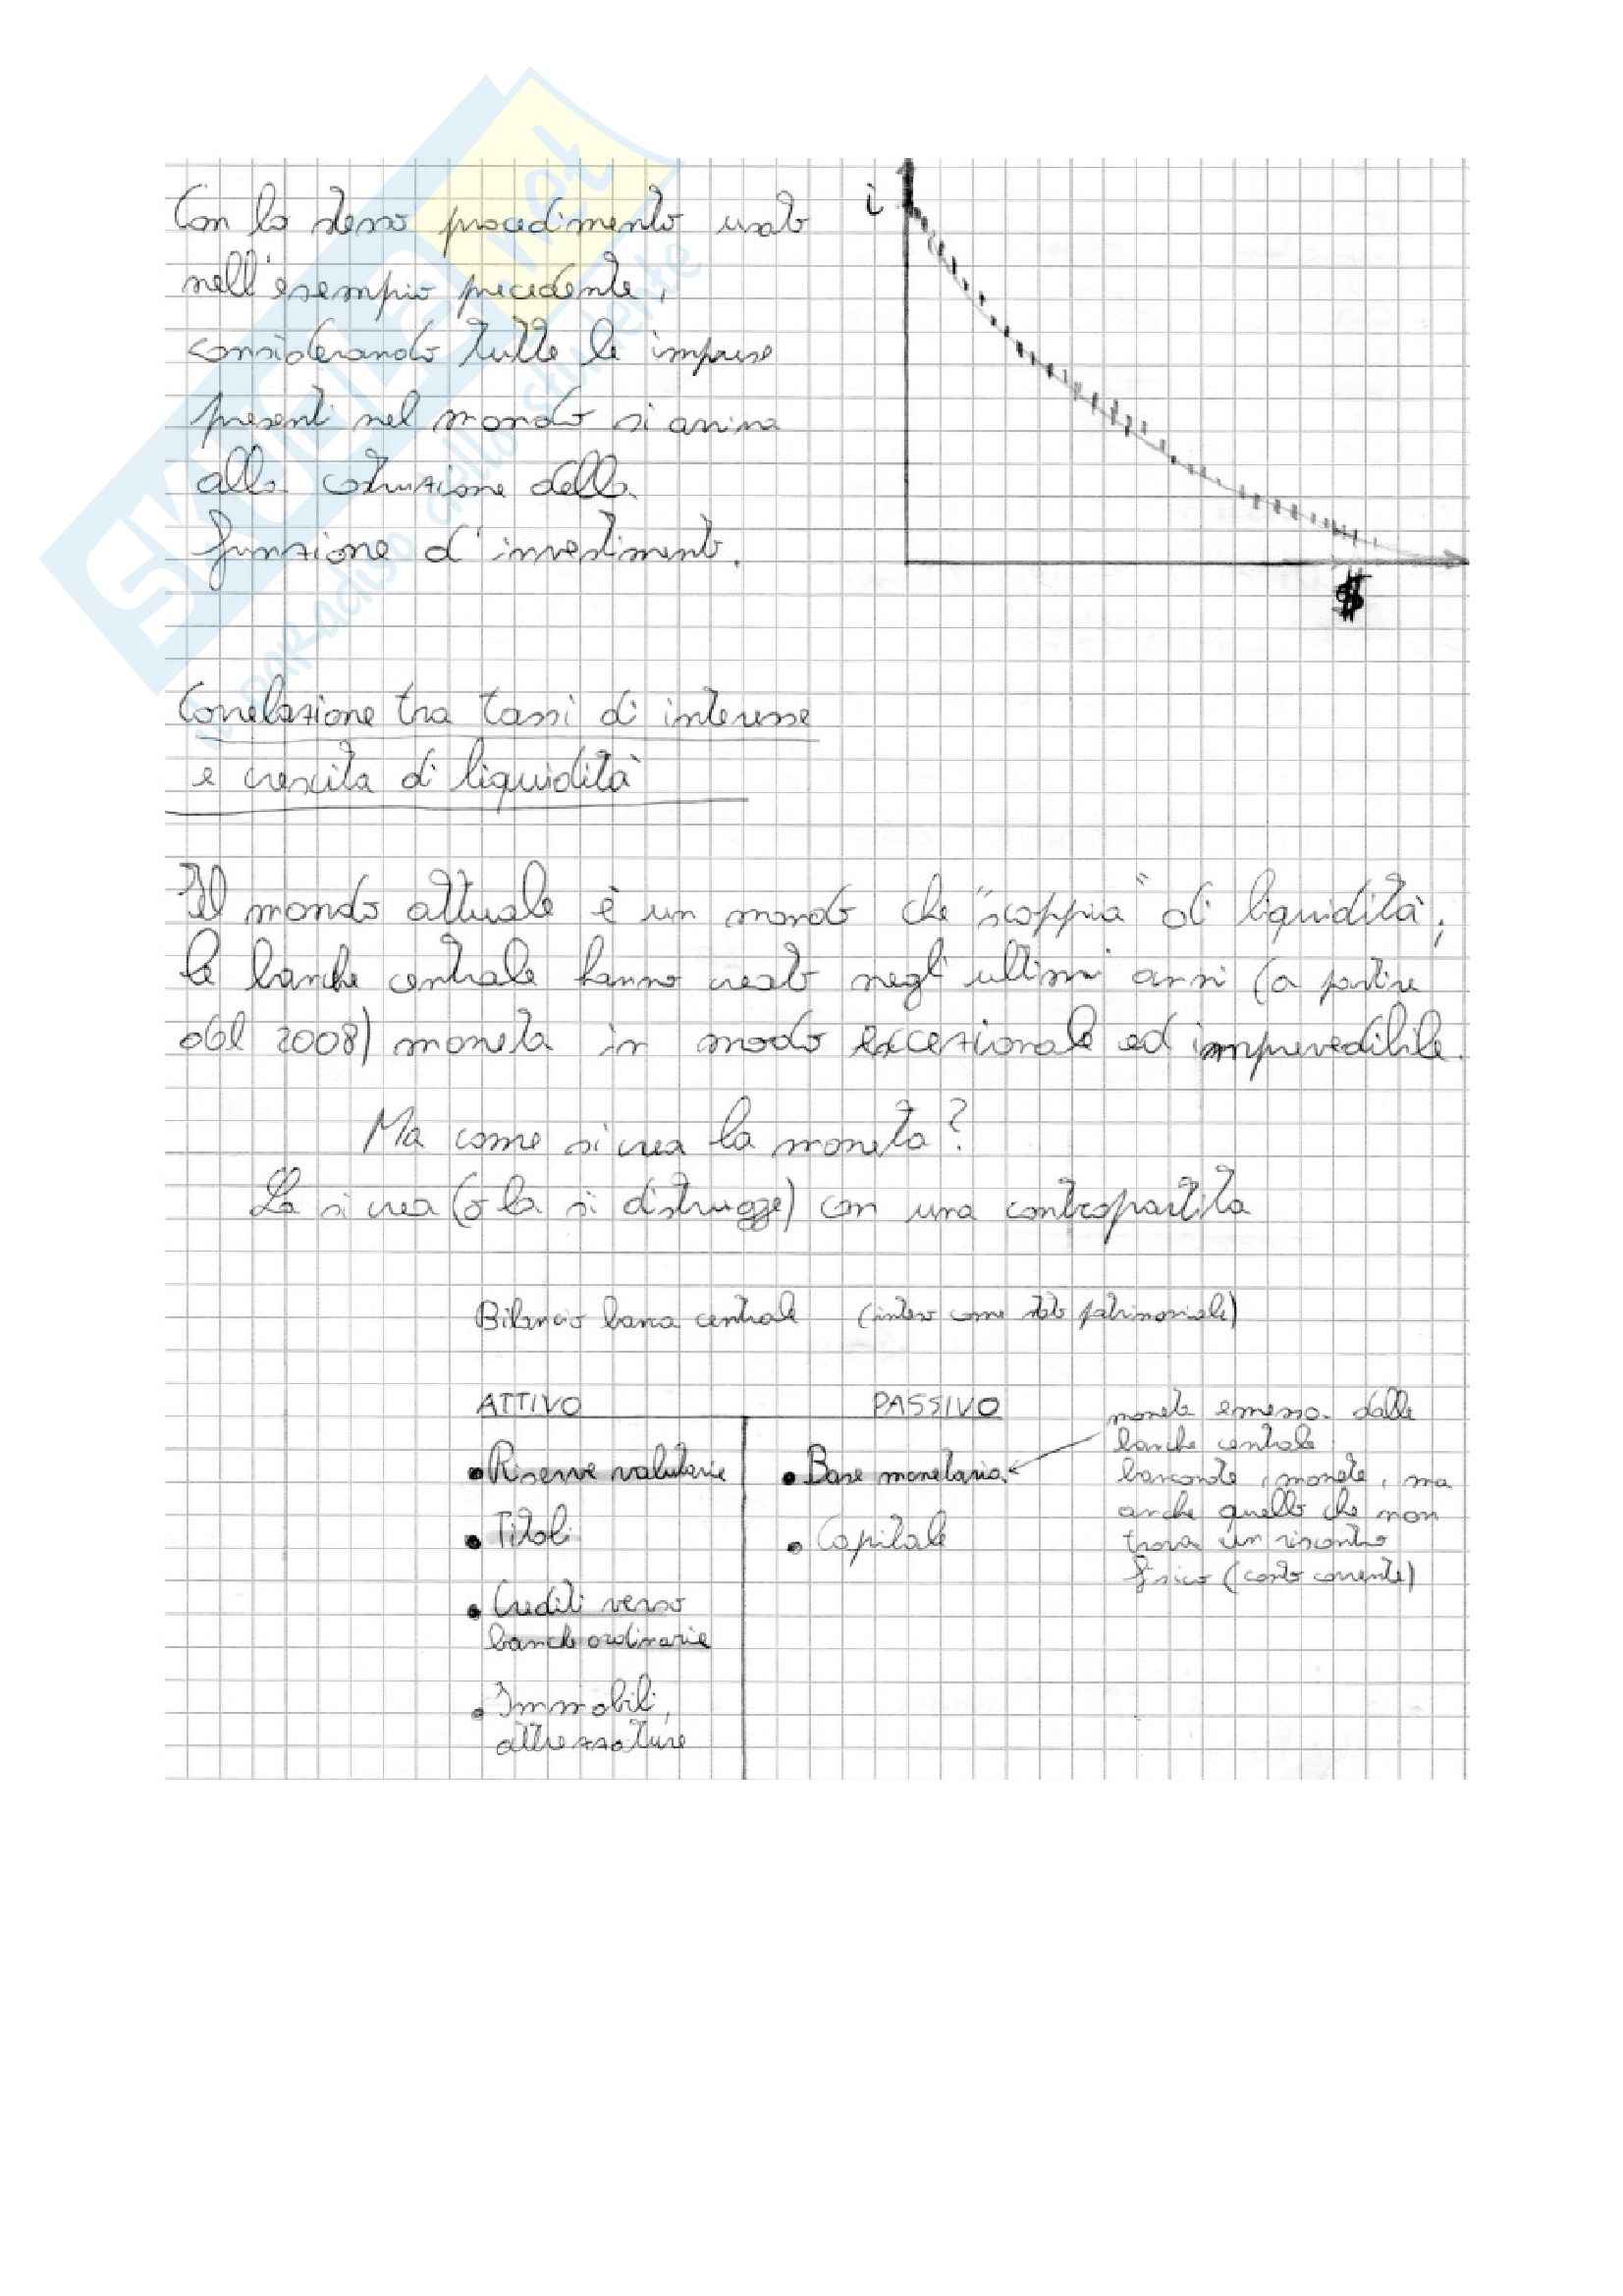 Con lo stesso procedimento usato
nell'esempio precedente,
considerando tutte le imprese
presenti nel mondo si arriva
alla costruzione della
funzione d'investimento.
i
$
Correlazione tra tassi di interesse
e crescita di liquidità
Il mondo attuale è un mondo che "scoppia" di liquidità;
le banche centrale hanno creato negli ultimi anni (a partire
dal 2008) moneta in modo eccezionale ed imprevedibile.
Ma come si crea la moneta?
La si crea (o la si distrugge) con una contropartita
Bilancio banca centrale (inteso come stato patrimoniale)
ATTIVO PASSIVO
• Riserve valutarie
• Titoli
• Crediti verso
banche ordinarie
• Immobili,
attrezzature
• Base monetaria
• Capitale
moneta emessa dalle
banche centrale
banconote, monete, ma
anche quello che non
trova un riscontro
fisico (conto corrente)
SKUOLA.net
il paradiso dello studente